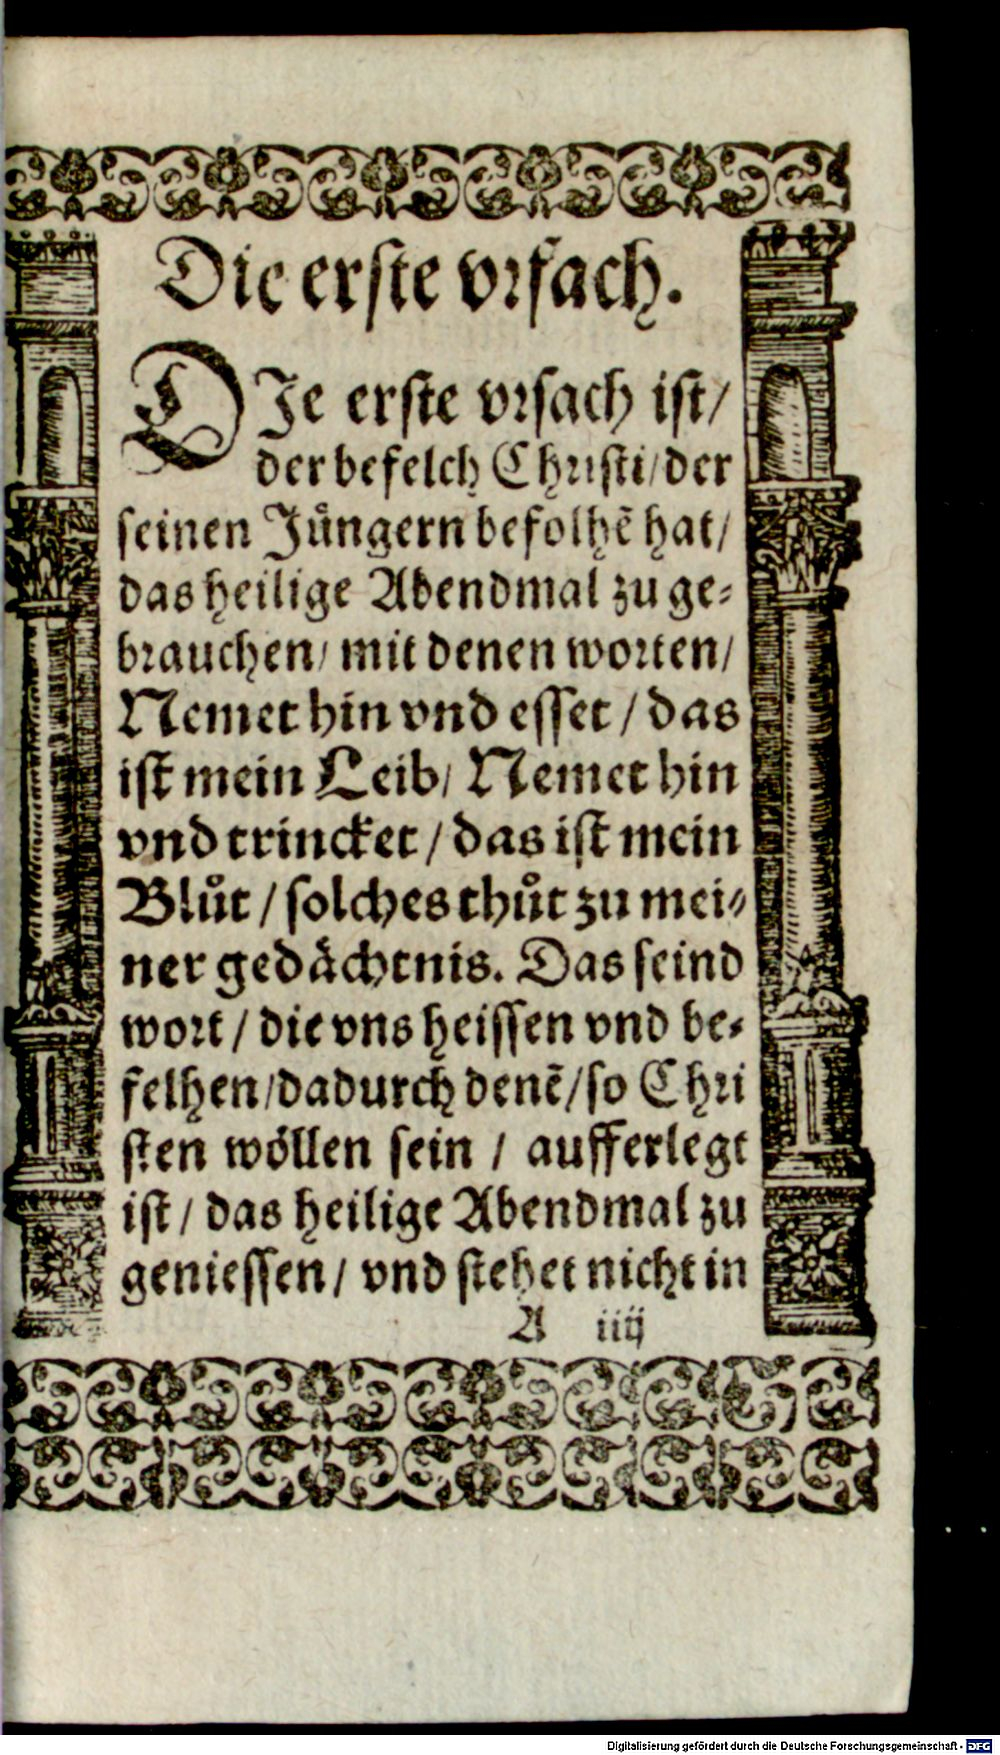 Die erste vrsach.
DJe erste vrsach ist/
der befelch Christi/der
seinen Jüngern befolhẽ hat/
das heilige Abendmal zu ge⸗
brauchen/ mit denen worten/
Nemet hin vnd esset / das
ist mein Leib/ Nemet hin
vnd trincket / das ist mein
Blůt / solches thůt zu mei⸗
ner gedächtnis. Das seind
wort / die vns heissen vnd be⸗
felhen/dadurch denẽ/so Chri
sten wöllen sein / aufferlegt
ist / das heilige Abendmal zu
geniessen/ vnd stehet nicht in
A iiij
Digitalisierung gefördert durch die Deutsche Forschungsgemeinschaft - DFG